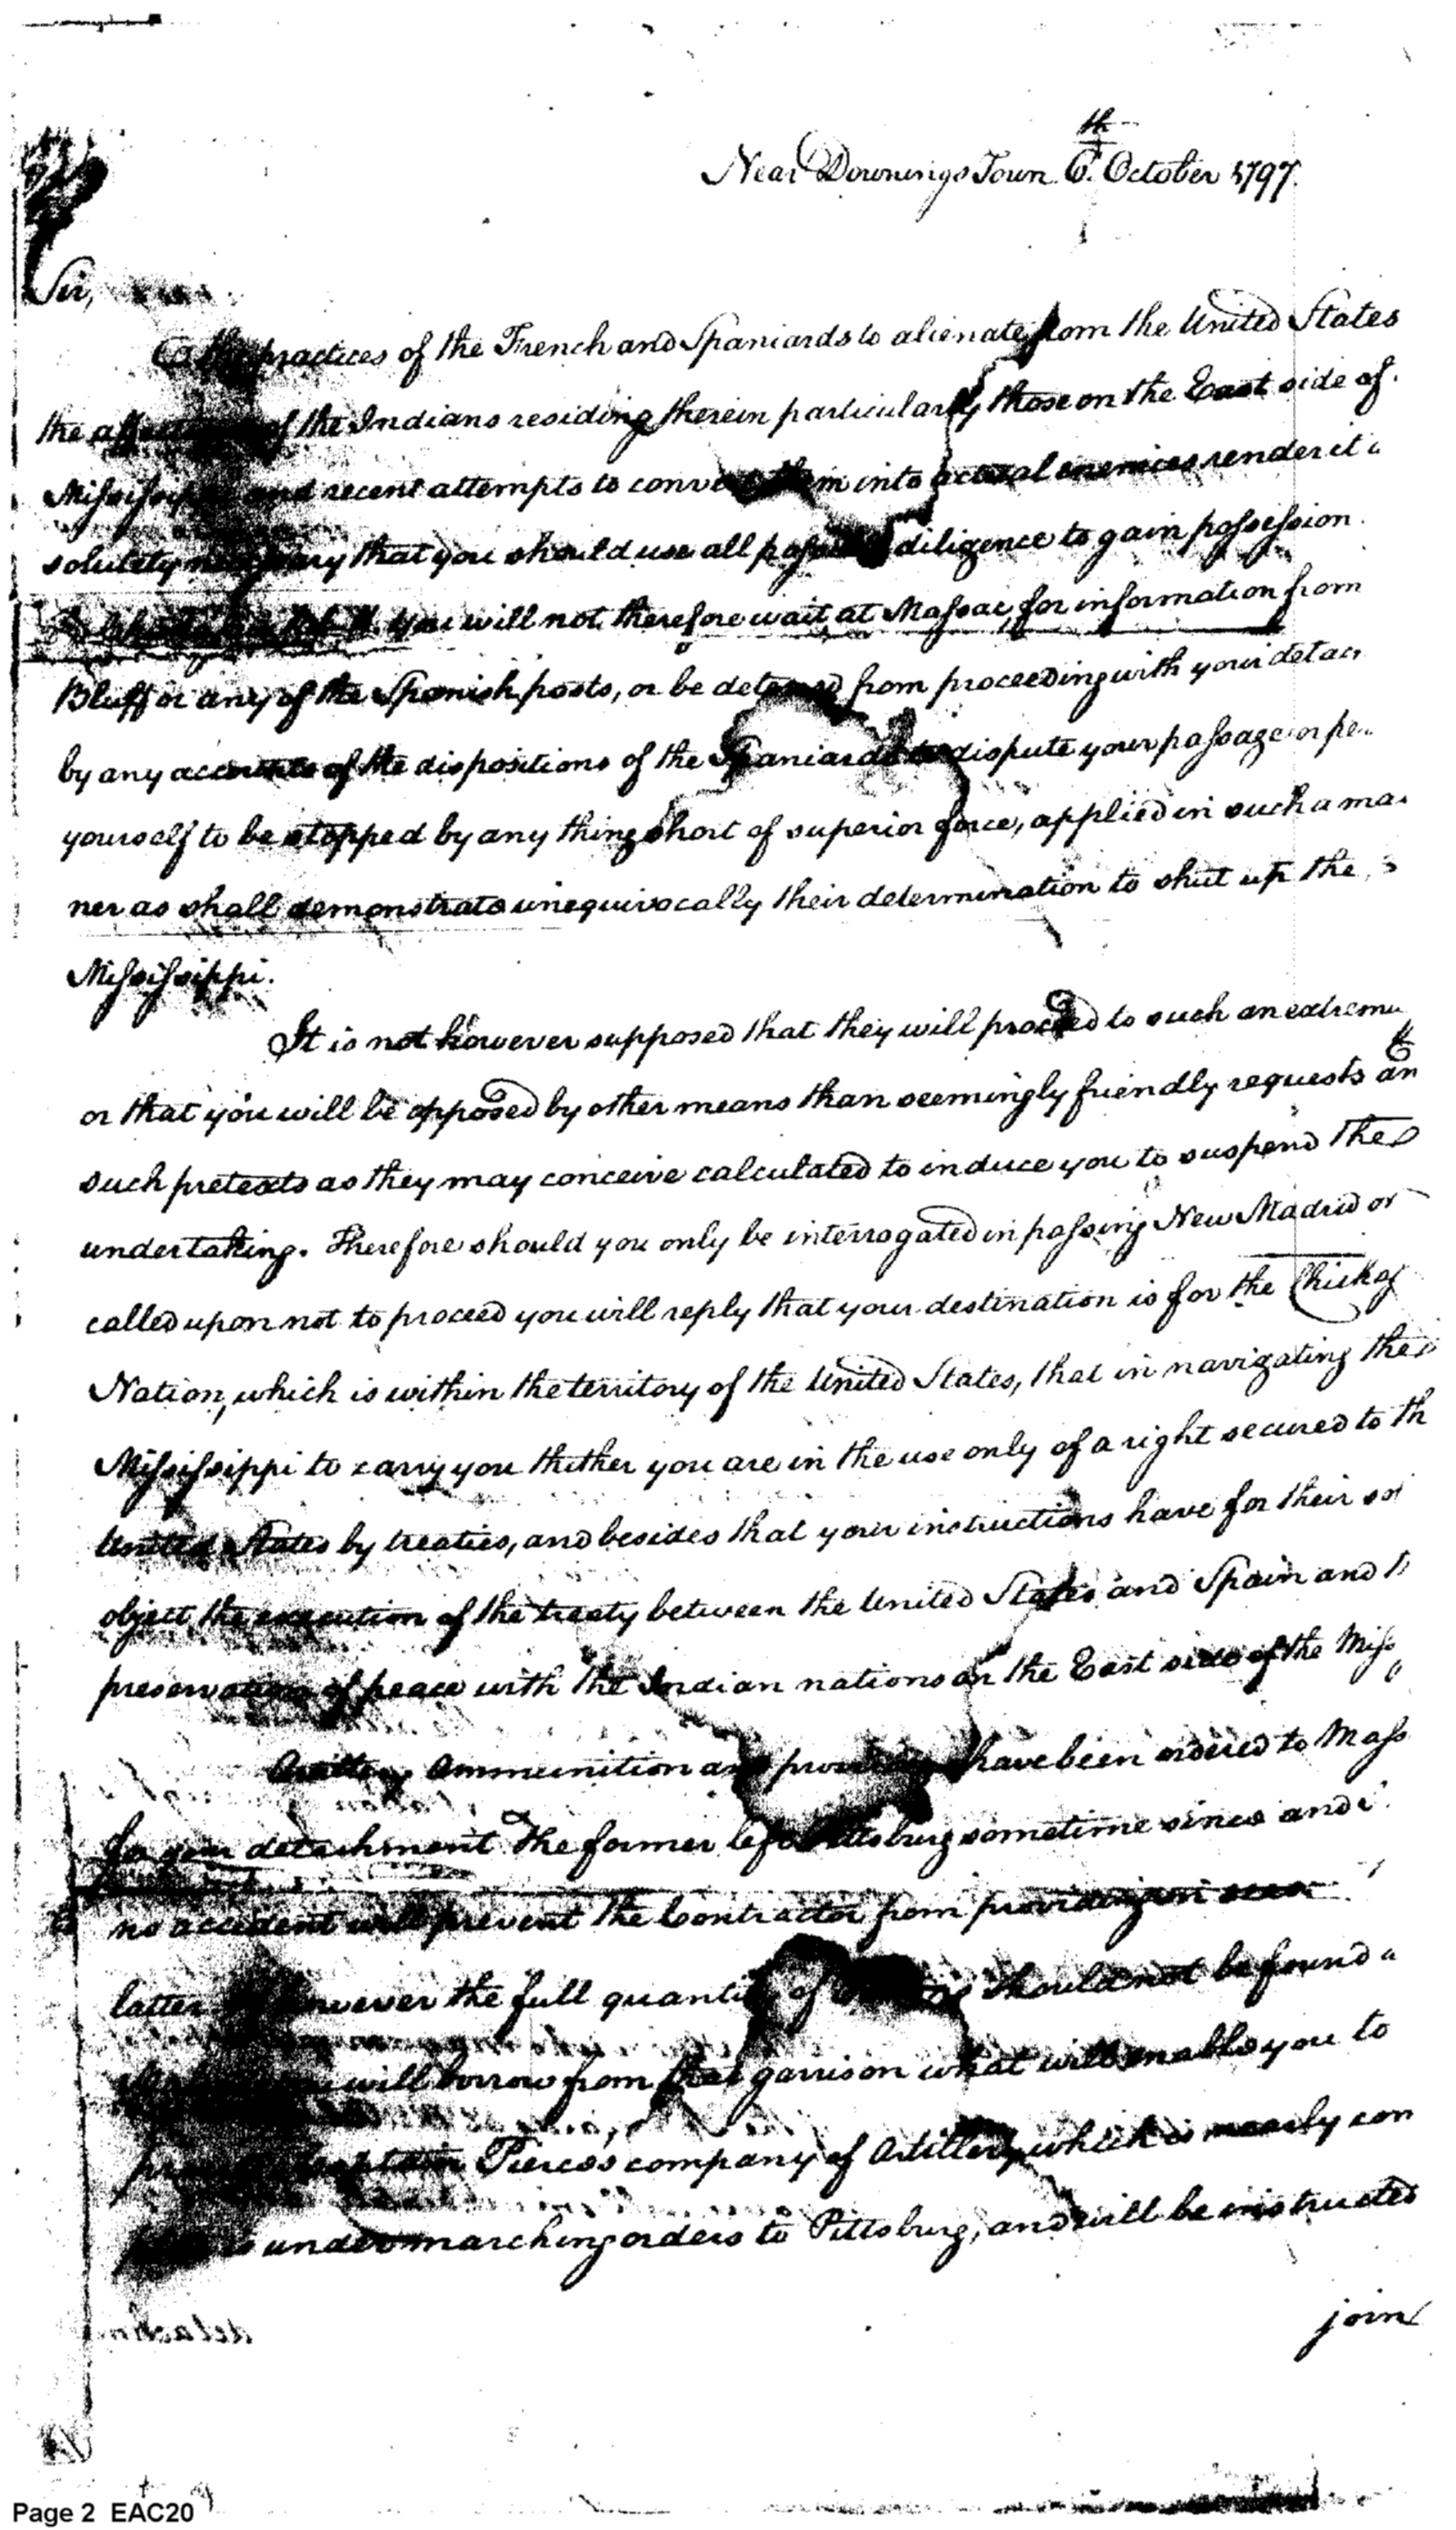 Near Downings Town. 6th October 1797.
Sir,
The practices of the French and Spaniards to alienate from the United States
the affections of the Indians residing therein particularly those on the East side of
Mississippi and recent attempts to convert them into actual enemies render it
solutely necessary that you should use all possible diligence to gain possession
you will not therefore wait at Massac, for information from
Bluff or any of the Spanish posts, or be deterred from proceeding with your detac
by any accounts of the dispositions of the Spaniards to dispute your passage or pe
yourself to be stopped by any thing short of superior force, applied in such a ma
ner as shall demonstrate unequivocally their determination to shut up the
Mississippi.
It is not however supposed that they will proceed to such an extrem
or that you will be opposed by other means than seemingly friendly requests an
such pretexts as they may conceive calculated to induce you to suspend the
undertaking. Therefore should you only be interrogated in passing New Madrid or
called upon not to proceed you will reply that your destination is for the Chickas
Nation, which is within the territory of the United States, that in navigating the
Mississippi to carry you thither you are in the use only of a right secured to th
United States by treaties, and besides that your instructions have for their so
object the execution of the treaty between the United States and Spain and t
preservation of peace with the Indian nations on the East side of the Miss
Artillery Ammunition and provisions have been ordered to Mass
for your detachment The former left Pittsburg sometime since and
no accident will prevent the Contractor from providing
latter however the full quantity of should not be found a
will borrow from that garrison what will enable you to
Captain Pierces company of Artillery which is nearly com
is under marching orders to Pittsburg, and will be instructed
join
Page 2 EAC20